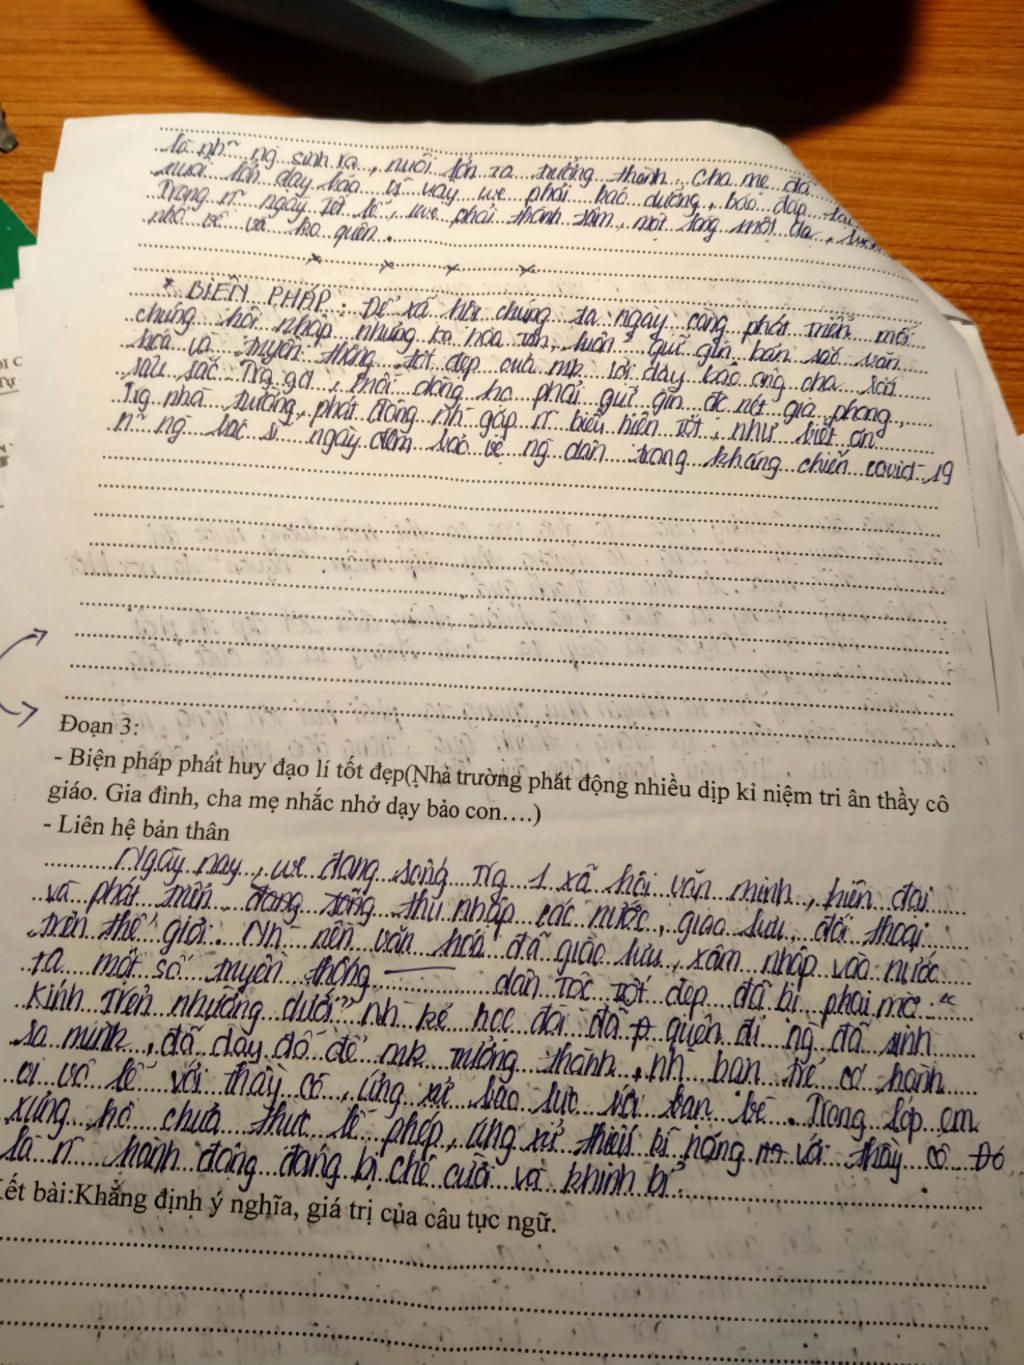 là nh~ ng sinh ra, nuôi lớn ta trưởng thành. Cha mẹ đã
nuôi lớn dạy bảo vì vậy we phải báo dưỡng, báo đáp
Trong n~ ngày tết lễ, we phải thành tâm, một lòng một dạ,
nhớ về và ko quên.
* BIỆN PHÁP: Để xã hội chúng ta ngày càng phát triển, mỗi
chúng hội nhập nhưng ko hòa tan, luôn giữ gìn bản sắc văn
hoá và truyền thống tốt đẹp của mk lời dạy bảo ông cha
sâu sắc. Trg gđ, mỗi dòng họ phải giữ gìn đc nét gia phong,
Trg nhà trường, phát động nh` góp n~ biểu hiện tốt, như biết ơn
n~ ng bác sĩ ngày đêm bảo vệ ng dân trong kháng chiến covid-19
Đoạn 3:
- Biện pháp phát huy đạo lí tốt đẹp(Nhà trường phát động nhiều dịp kỉ niệm tri ân thầy cô
giáo. Gia đình, cha mẹ nhắc nhở dạy bảo con….)
- Liên hệ bản thân
Ngày nay, we đang sống trg 1 xã hội văn minh, hiện đại
và phát triển, đang sống thu nhập các nước, giao lưu, đối thoại
trên thế giới. Nh` nền văn hoá đã giao lưu, xâm nhập vào nước
ta một số truyền thống dân tộc tốt đẹp đã bị phai mờ "
Kính trên nhường dưới" nh` kẻ học đòi đã quên đi ng đã sinh
ra mình, đã dạy dỗ để mk trưởng thành, nh` bạn trẻ có hành
vi vô lễ với thầy cô, ứng xử bạo lực với bạn bè. Trong lớp em
xưng hô chưa thực lễ phép, ứng xử thiếu bĩ nặng với thầy cô Đó
là n~ hành động đáng bị chê cười và khinh bỉ.
ết bài:Khẳng định ý nghĩa, giá trị của câu tục ngữ.